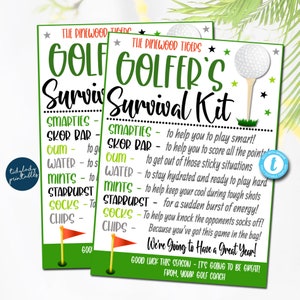 THE PINEWOOD TIGERS
GOLFER'S
Survival Kit
SMARTIES - to help you to play smart!
SKOR BAR - to help you to score all the points
GUM - to get out of those sticky situations
WATER - to stay hydrated and ready to play hard
MINTS - to help keep your cool during tough shots
STARBURST - for a sudden burst of energy!
SOCKS - to help you knock the opponents socks off!
CHIPS - Because you've got this game in the bag!
We're Going to Have a Great Year!
GOOD LUCK THIS SEASON - IT'S GOING TO BE GREAT!
FROM, YOUR GOLF COACH
THE PINEWOOD TIGERS
GOLFER'S
Survival Kit
SMARTIES -
SKOR BAR -
GUM -
WATER -
MINTS -
STARBURST
SOCKS -
CHIPS -
GOOD LUCK